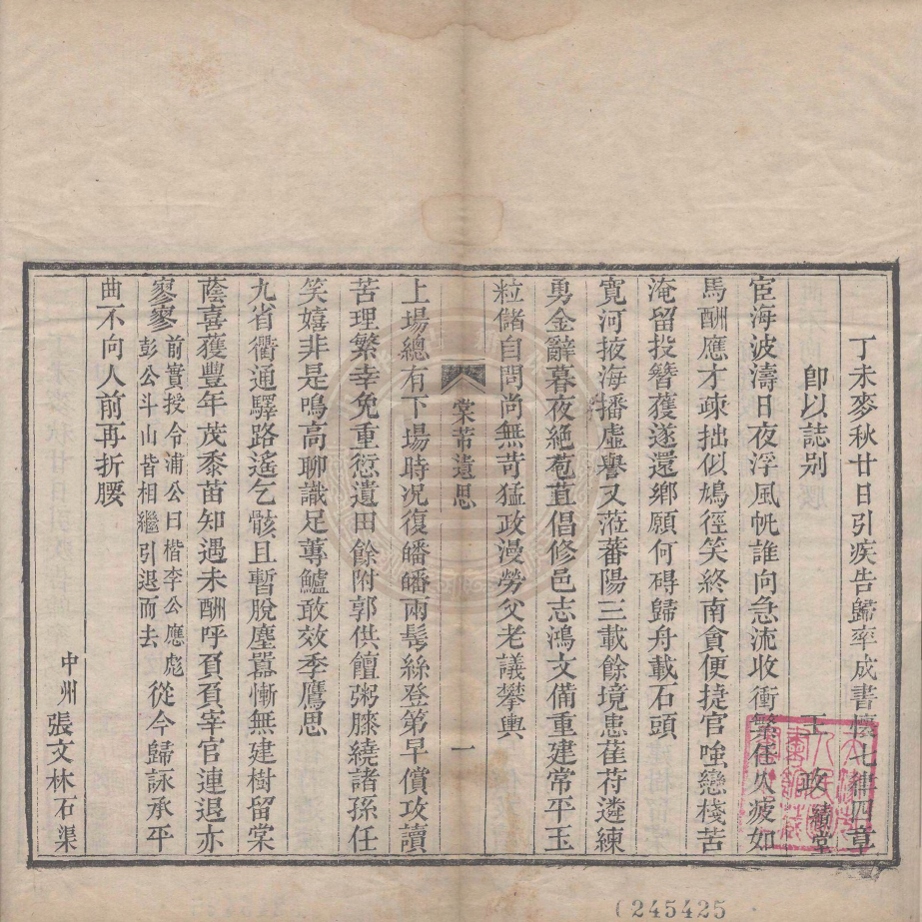 丁未麥秋廿日引疾告歸率成書懷七律四章
卽以誌别
王政績堂
宦海波濤日夜浮風帆誰向急流收衝繁任久疲如
馬酬應才疎拙似鳩徑笑終南貪便捷官嗤戀棧苦
淹留投簪獲遂還鄉願何碍歸舟載石頭
寛河掖海播虛譽又蒞蕃陽三載餘境患萑苻遴練
勇金辭暮夜絕苞苴倡修邑志鴻文備重建常平玉
粒儲自問尚無苛猛政漫勞父老議攀輿
棠芾遺思
一
上場總有下場時况復皤皤兩髩絲登第早償攻讀
苦理繁幸免重愆遺田餘附郭供饘粥膝繞諸孫任
笑嬉非是鳴高聊識足蓴鱸敢效季鷹思
九省衢通驛路遙乞骸且暫脫塵囂慚無建樹留棠
蔭喜獲豐年茂黍苗知遇未酬呼負負宰官連退亦
寥寥前實授令浦公曰楷李公應彪彭公斗山皆相繼引退而去從今歸詠承平
曲不向人前再折腰
中州張文林石渠
(245425